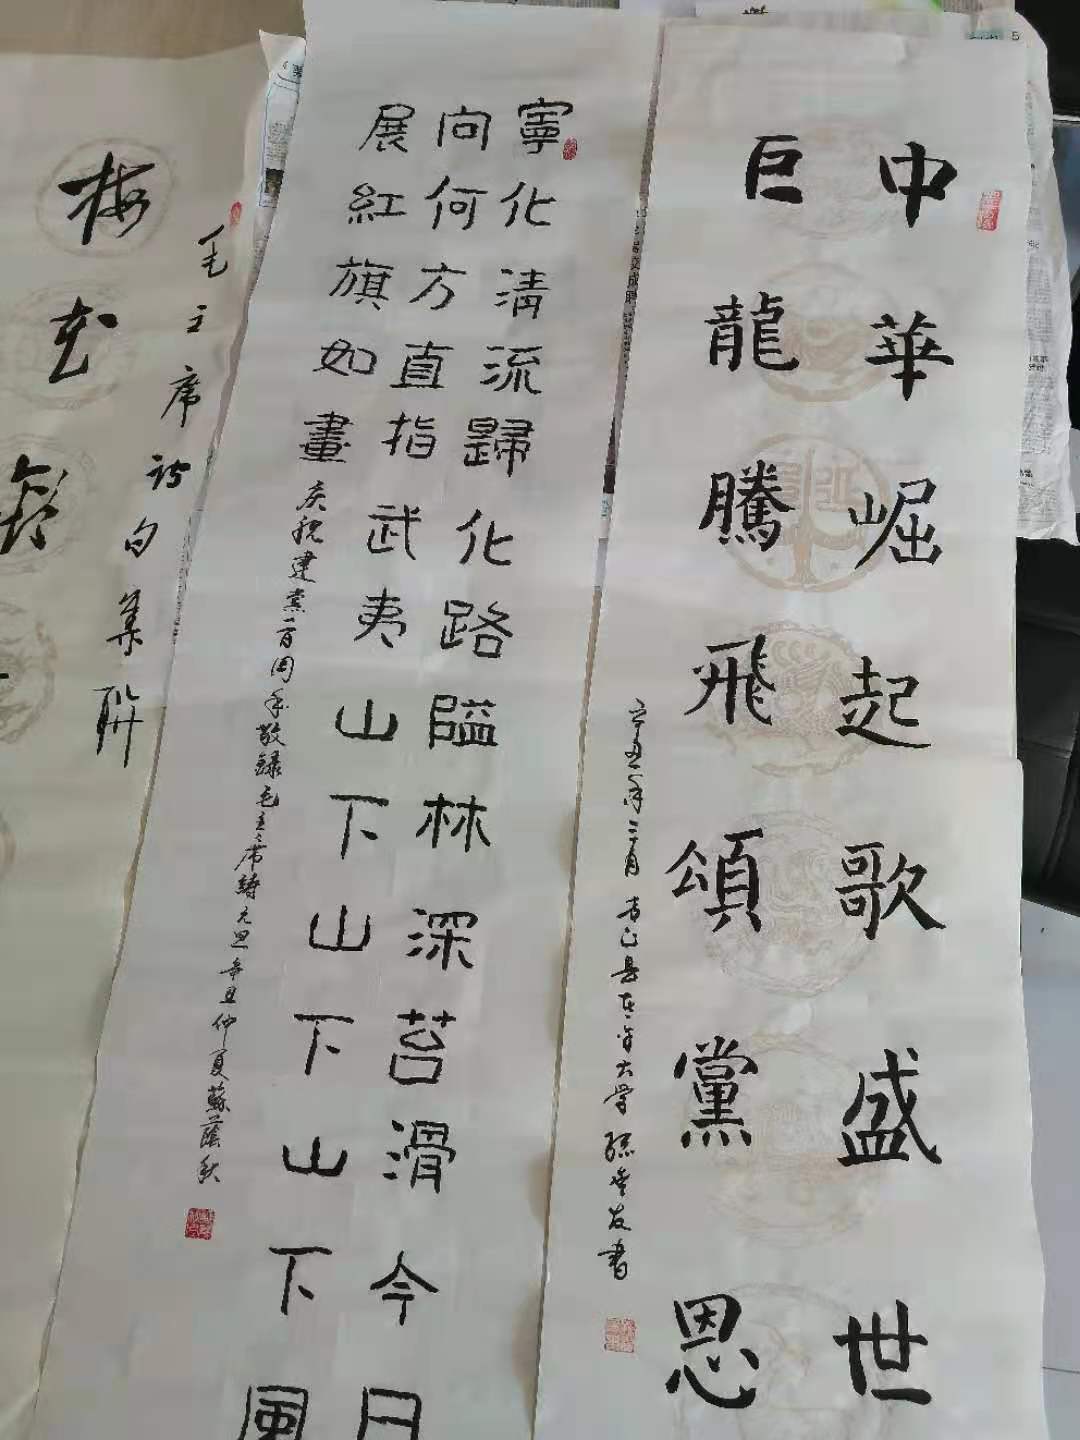 中華崛起歌盛世
巨龍騰飛頌黨恩
辛丑年三月
老年大学
友書
寧化清流歸化路隘林深苔滑今日
向何方直指武夷山下山下山下風
展紅旗如畫
庆祝建党一百周年敬録毛主席詩元旦辛丑仲夏蘇蔭秋
毛主席诗句集联
梅花